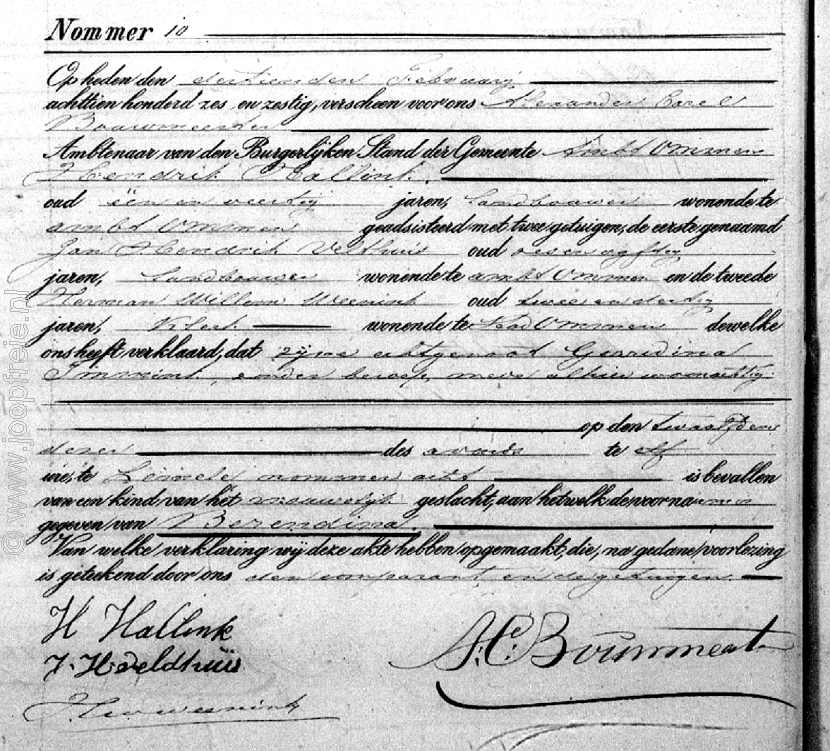 Nommer 10
Op heden den dertienden Februarij
achttien honderd zes en zestig, verscheen voor ons Alexander Carel
Bouwmeester
Ambtenaar van den Burgerlijken Stand der Gemeente Ambt Ommen
Hendrik Hallink
oud een en veertig jaren, landbouwer wonende te
ambt Ommen geadsisteerd met twee getuigen, de eerste genaamd
Jan Hendrik Velthuis oud zes en vijftig
jaren, landbouwer wonende te ambt Ommen en de tweede
Herman Willem Weenink oud twee en dertig
jaren, Klerk wonende te Stad Ommen dewelke
ons heeft verklaard, dat zijne echtgenoot Gerridina
Immink, zonder beroep, mede alhier woonachtig
op den twaalfden
dezer des avonds te elf
ure, te Lemele nommer acht is bevallen
van een kind van het vrouwelijk geslacht, aan hetwelk de voornamen
gegeven van Berendina.
Van welke verklaring wij deze akte hebben opgemaakt, die, na gedane voorlezing
is geteekend door ons den comparant en de getuigen.
H Hallink
J. H. Veldhuis
A. C. Bouwmeester
H W Weenink
© www.joopfreje.nl